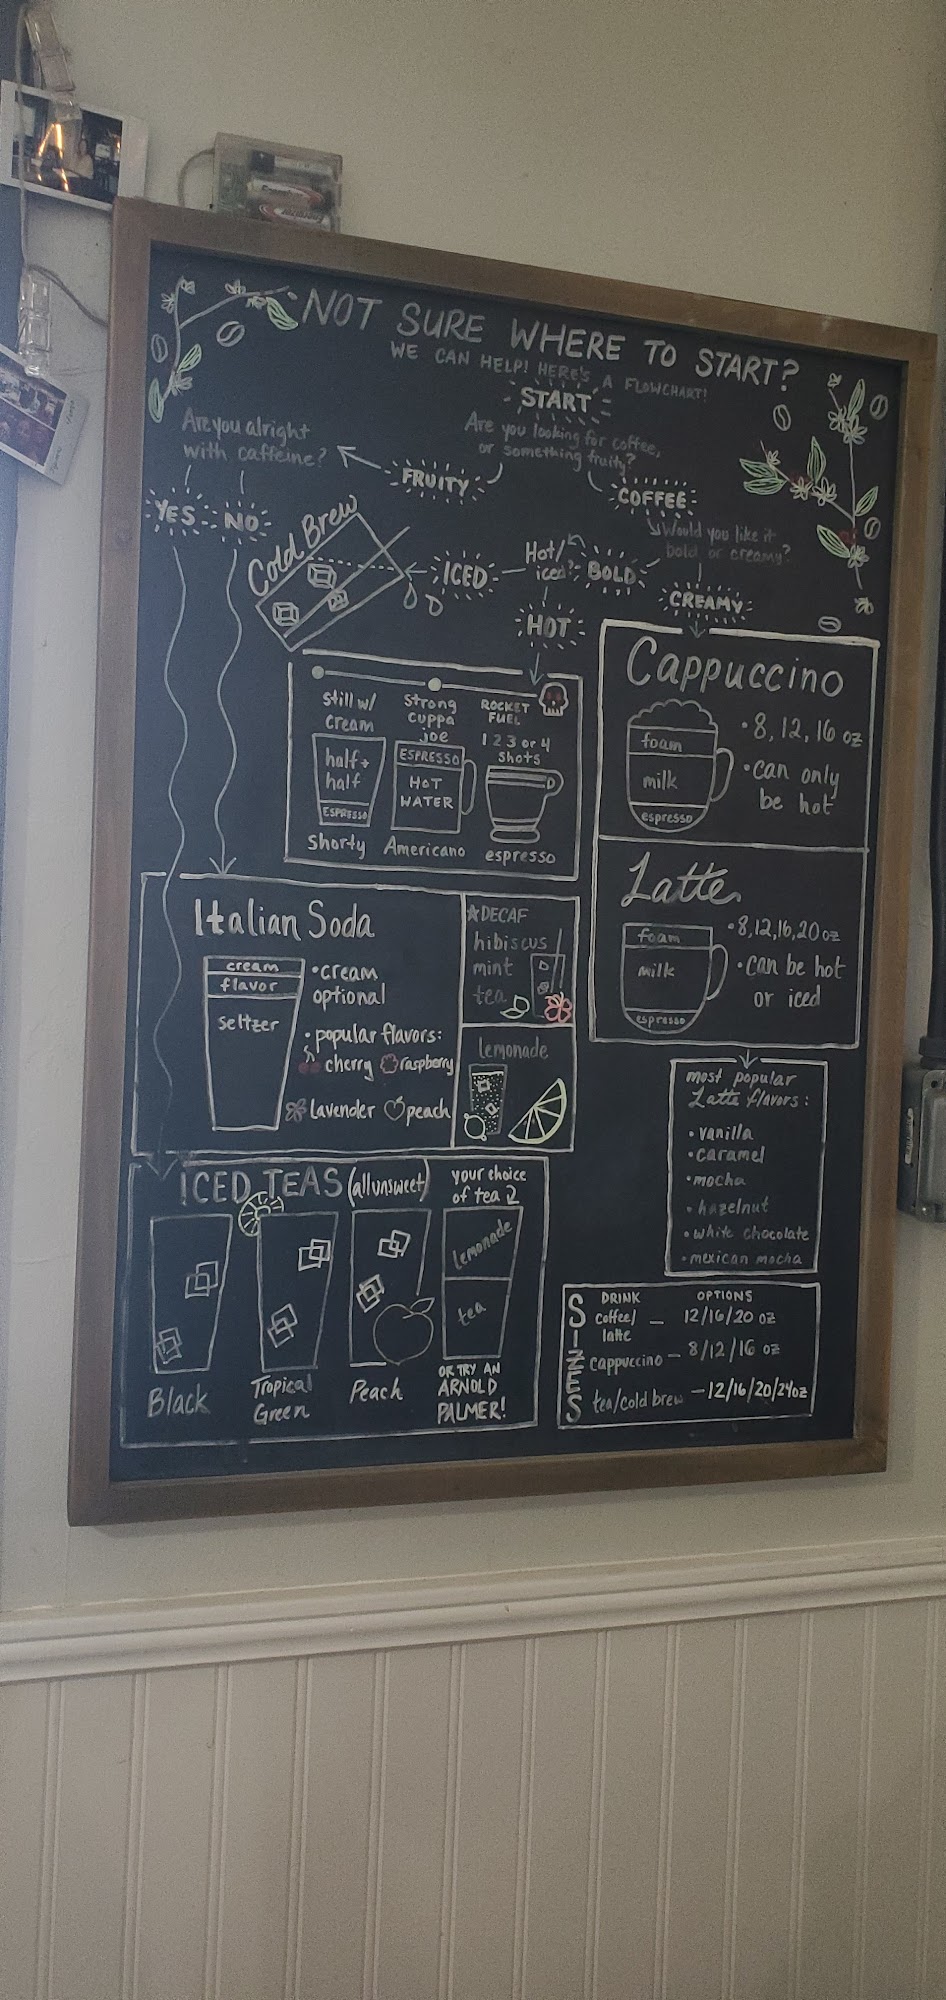 NOT SURE WHERE TO START?
WE CAN HELP! HERE'S A FLOWCHART!
START
Are you looking for coffee,
or something fruity?
FRUITY
COFFEE
Are you alright
with caffeine?
YES
NO
Would you like it
bold or creamy?
BOLD
CREAMY
Hot/
iced?
ICED
HOT
Cold Brew
still w/
cream
half +
half
ESPRESSO
Shorty
Strong
cuppa
joe
ESPRESSO
HOT
WATER
Americano
ROCKET
FUEL
1 2 3 or 4
shots
espresso
Cappuccino
foam
milk
espresso
• 8, 12, 16 oz
• can only
be hot
Latte
foam
milk
espresso
• 8, 12, 16, 20 oz
• can be hot
or iced
Italian Soda
cream
flavor
seltzer
• cream
optional
• popular flavors:
cherry raspberry
lavender peach
☆DECAF
hibiscus
mint
tea
lemonade
most popular
Latte flavors:
• vanilla
• caramel
• mocha
• hazelnut
• white chocolate
• mexican mocha
ICED TEAS (all unsweet)
Black
Tropical
Green
Peach
your choice
of tea
lemonade
tea
OR TRY AN
ARNOLD
PALMER!
SIZES
DRINK OPTIONS
coffee/
latte — 12/16/20 oz
cappuccino — 8/12/16 oz
tea/cold brew — 12/16/20/24oz